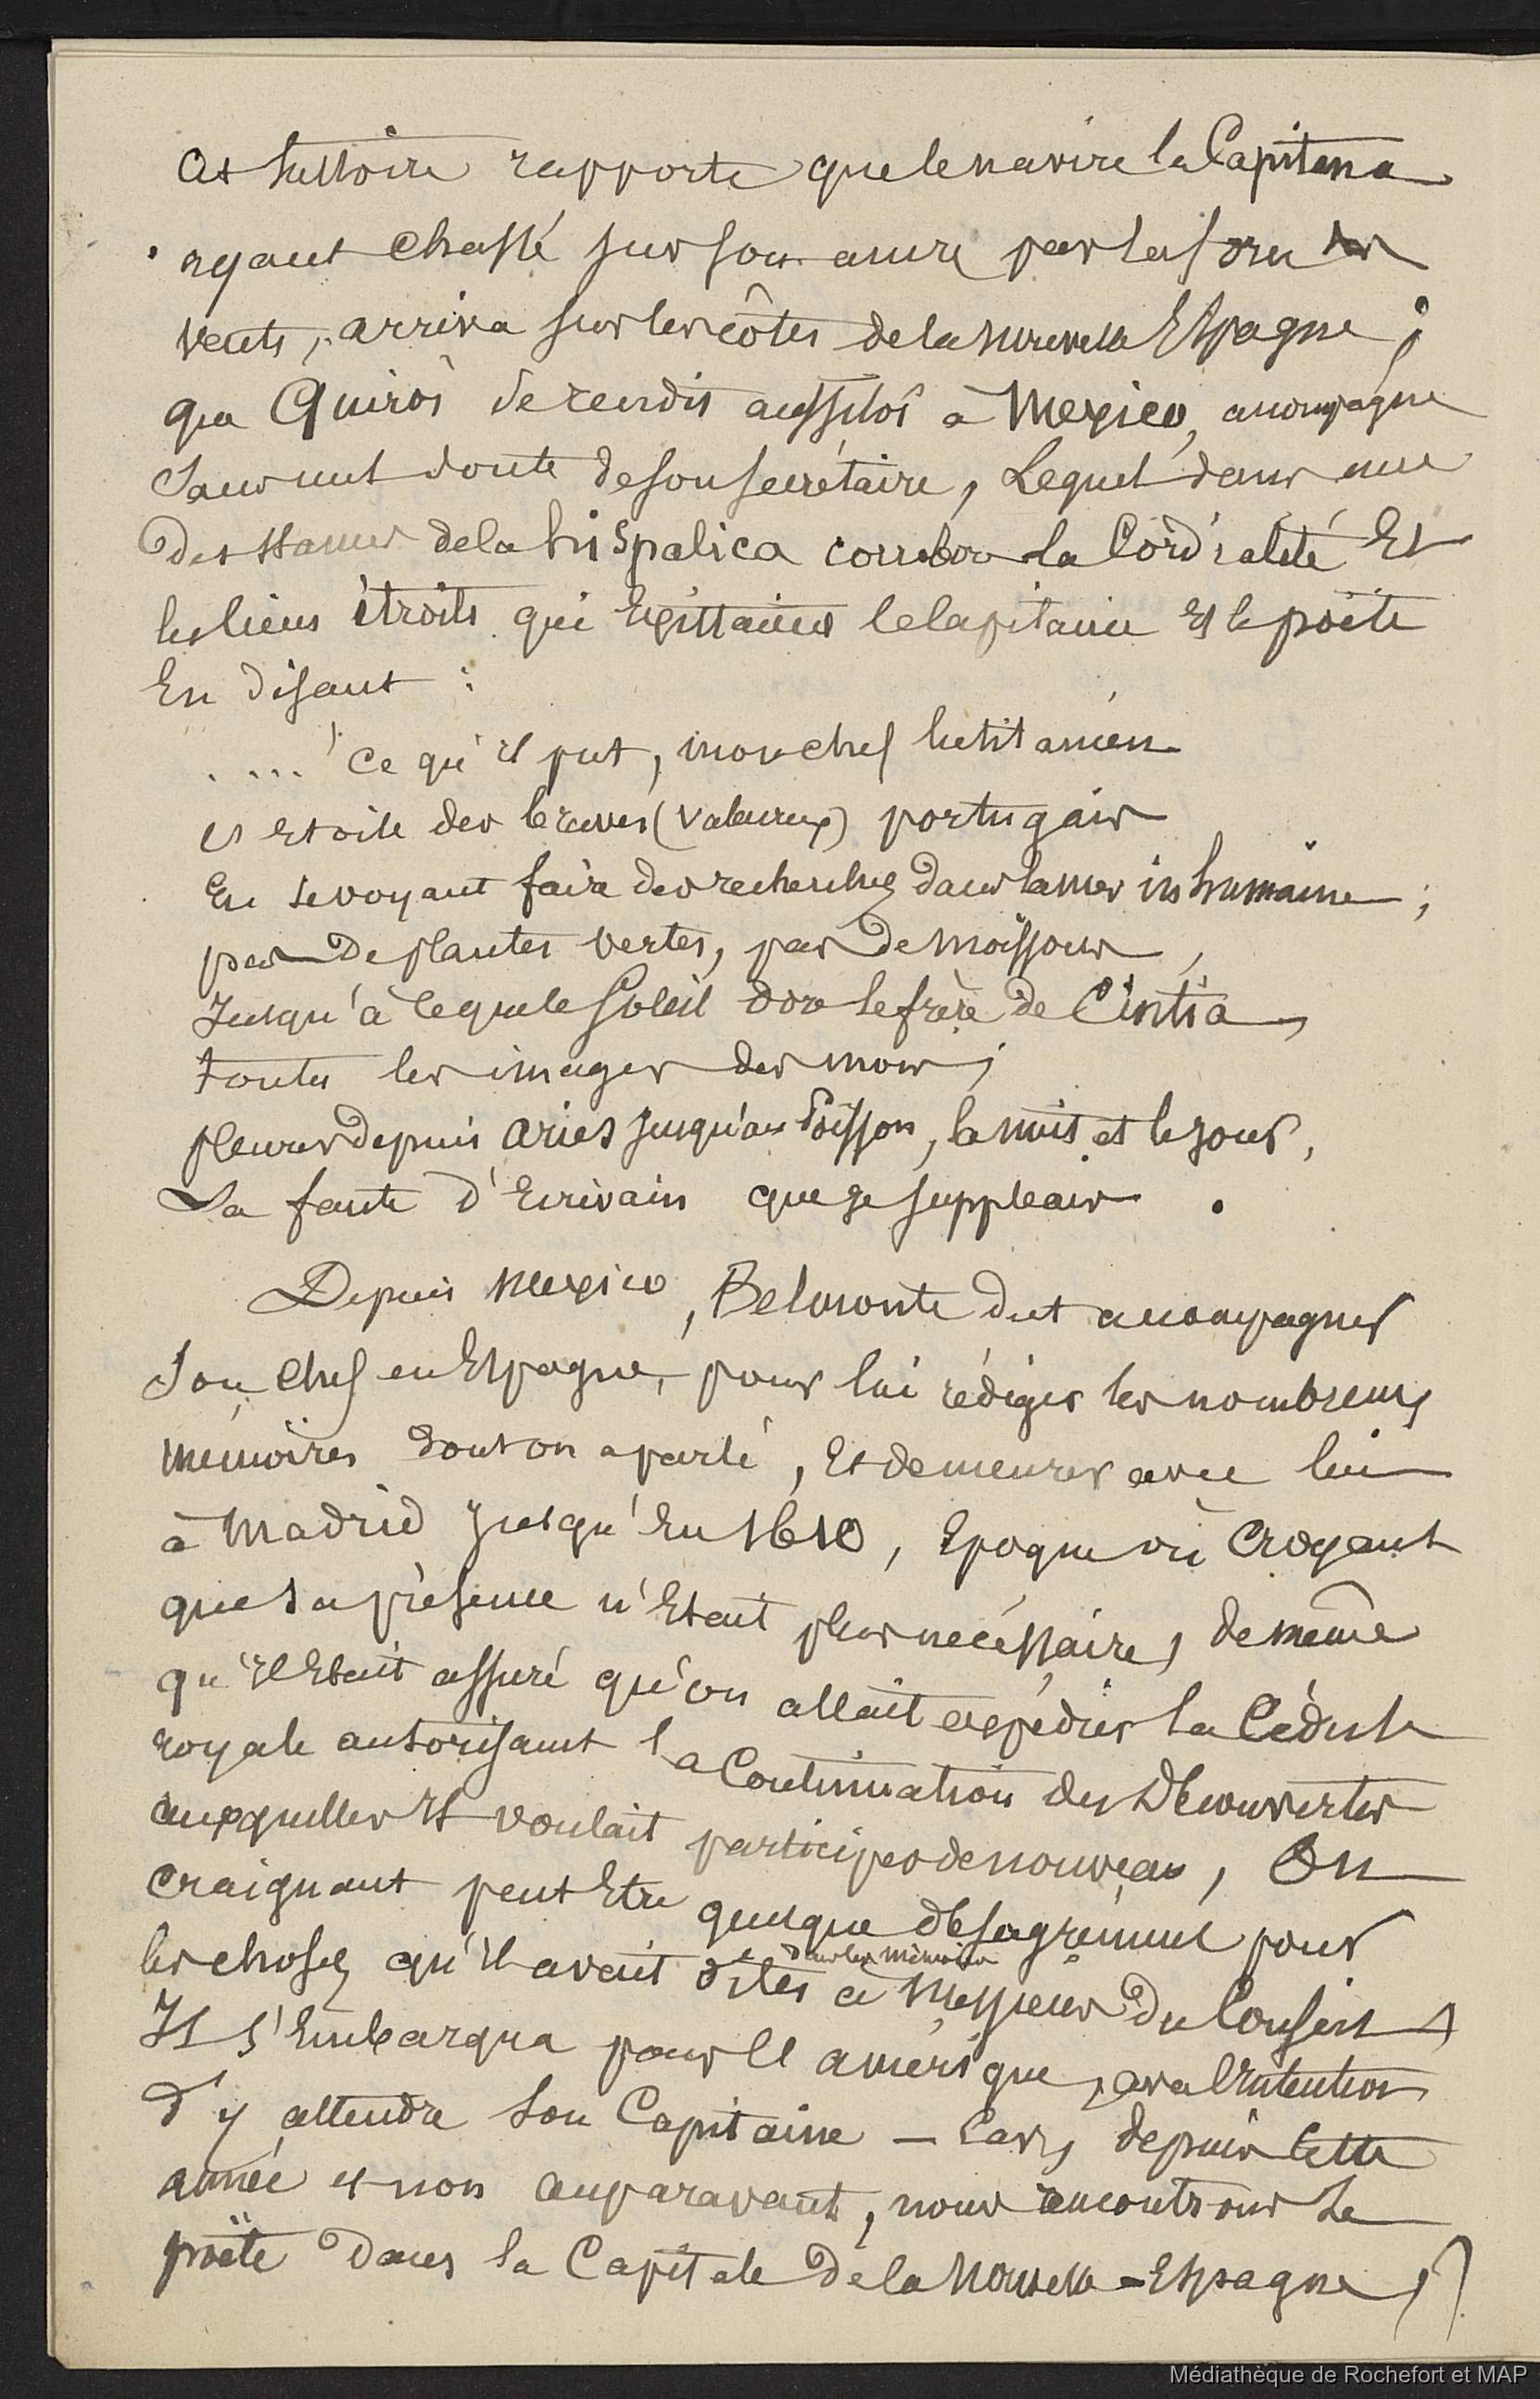 histoire rapporte que le navire la Capitana
ayant chassé sur son ancre par la force des
vents, arriva sur les côtes de la nouvelle Espagne ;
que Quiros se rendit aussitôt à Mexico, accompagné
sans nul doute de son secrétaire, Lequel dans une
des stances de la hispalica corrobore la Cordialité Et
les liens étroits qui Existaient le capitaine Et le poëte
En disant :
..... Ce qu'il put, mon chef lusitanien
et Etoile des braves (valeureux) portugais
En se voyant faire des recherches dans la mer inhumaine ;
pas De plantes vertes, pas De moissons,
Jusqu'à ce que le Soleil dore le frère de Cintia,
toutes les images des mois ;
pleures depuis Aries jusqu'au Poisson, la nuit et le jour,
La faute d'Ecrivain que je suppléais .
Depuis Mexico, Belmonte dut accompagner
son chef en Espagne, pour lui rédiger les nombreux
mémoires dont on a parlé, Et demeurer avec lui
à Madrid Jusqu'En 1610, Epoque où Croyant
que sa présence n'Etait plus nécéssaire, de même
qu'il Etait assuré qu'on allait expédier la Cédule
royale autorisant la Continuation des Découvertes
auxquelles Il voulait participer de nouveau, Ou
craignant peut Etre quelque désagrément pour
les choses qu'il avait dites dans les mémoires à Messieurs Du Conseil,
Il s'Embarqua pour l'amérique, avec l'Intention
d'y attendre son Capitaine — Car, depuis Cette
année et non auparavant, nous rencontrons le
poëte Dans la Capitale De la Nouvelle-Espagne,
Médiathèque de Rochefort et MAP